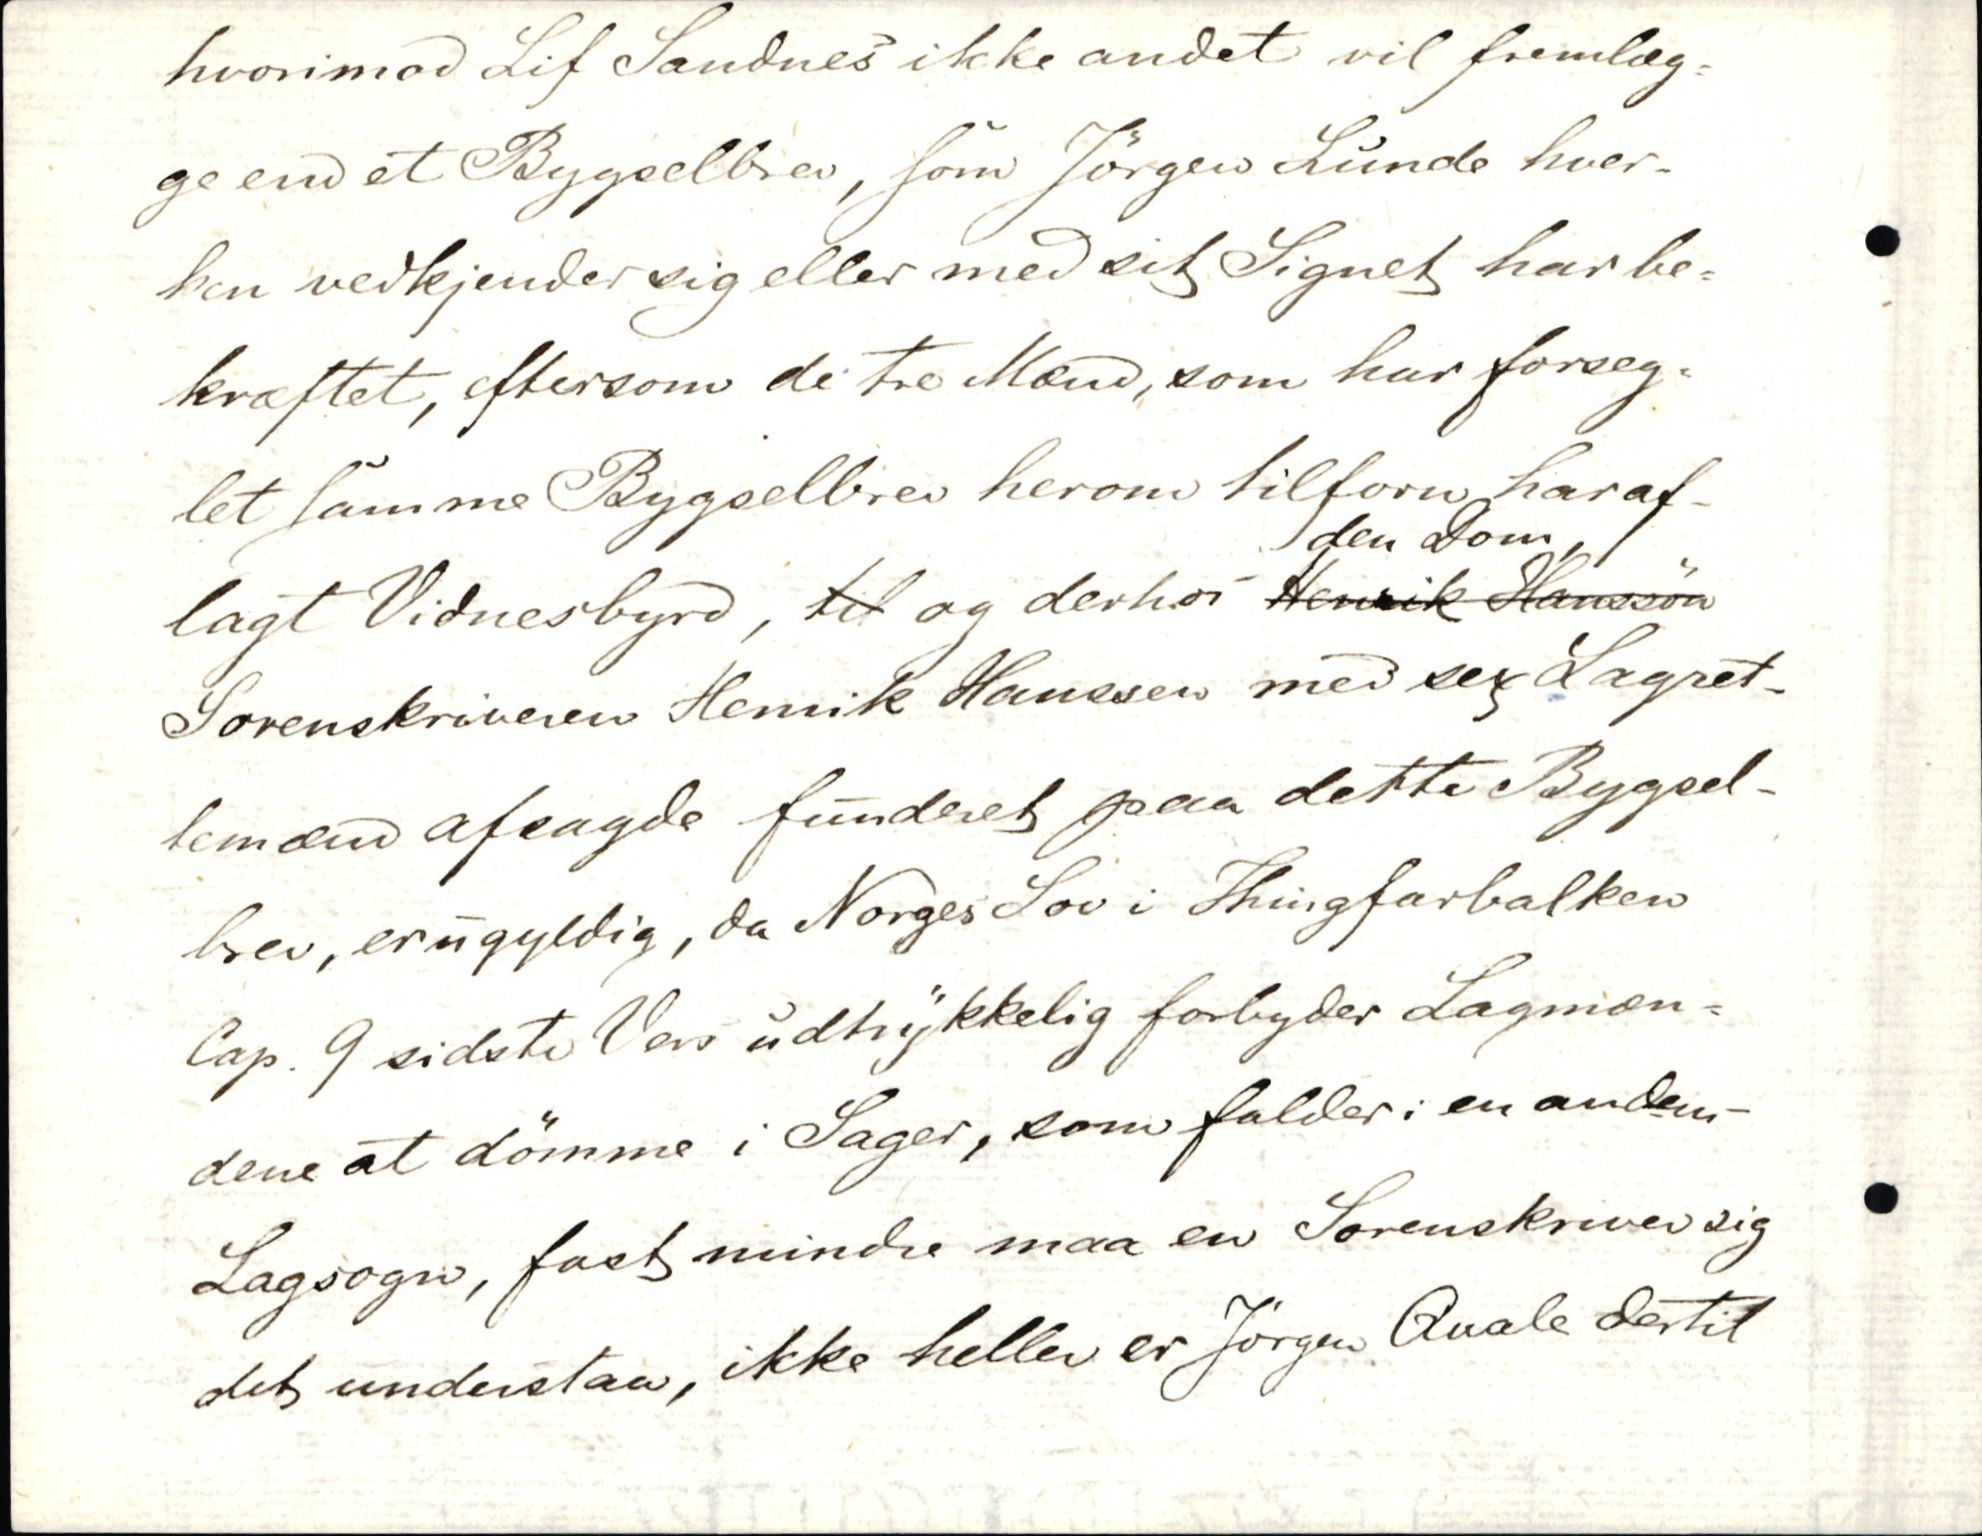 hvorimod Lif Sandnes ikke andet vil fremlæg=
ge end et Bygselbrev, som Jörgen Lunde hver-
ken vedkjender sig eller med sit Signet har be=
kræftet, eftersom de tre Mænd, som har forseg=
let samme Bygselbrev herom tilforn har af-
den Dom,
lagt Vidnesbyrd, til og derhos Henrik Hanssön
Sorenskriveren Henrik Hanssen med sex Lagret-
temænd afsagde funderet paa dette Bygsel-
brev, er ugyldig, da Norges Lov i Thingfarbalken
Cap. 9 sidste Vers udtrykkelig forbyder Lagmæn=
dene at dömme i Sager, som falder i en anden-
Lagsogn, fast mindre maa en Sorenskriver sig
det understaa, ikke heller er Jörgen Quale dertil